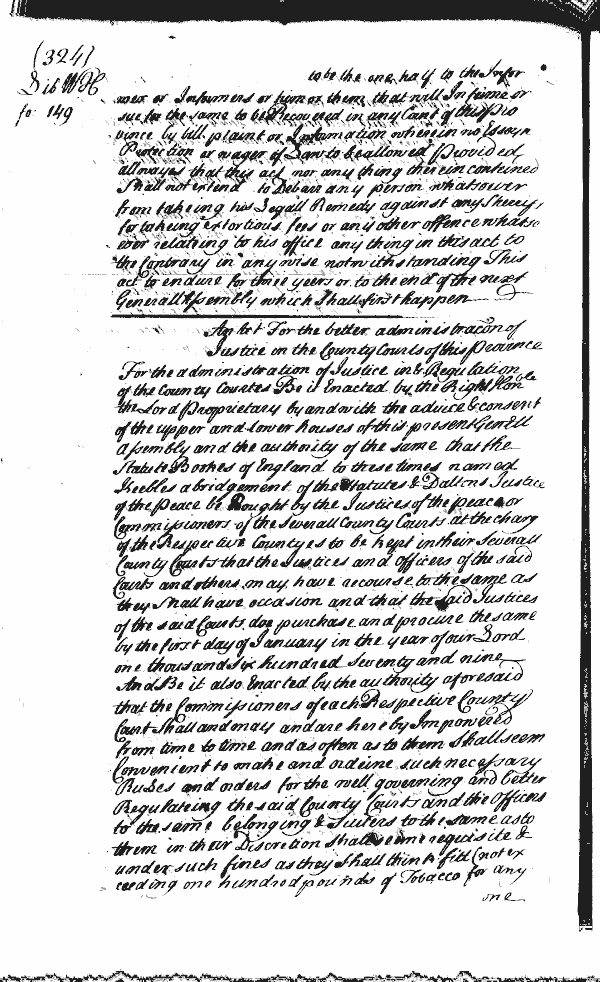 (324)
Lib W H
fo: 149
to be the one half to the Infor
mer or Informers or him or them that will Informe or
sue for the same to be Recovered in any Court of this Pro
vince by bill plaint or Information wherein no Essoyn
Protection or wager of Law to be allowed Provided
allwayes that this act nor any thing therein contained
Shall not extend to Debarr any person whatsoever
from takeing his Legall Remedy against any Sheriff
for takeing extortious fees or any other offence whatso
ever relateing to his office any thing in this act to
the Contrary in any wise notwithstanding This
act to endure for three years or to the end of the next
Generall Assembly which Shall first happen
An Act For the better administracon of
Justice in the County Courts of this Province
For the administration of Justice in & Regulation
of the County Courtes Be it Enacted by the Right Honble
the Lord Proprietary by and with the advice & consent
of the upper and Lower houses of this present Generll
Assembly and the authority of the same that the
Statute Bookes of England to these times named
Keebles abridgement of the Statutes & Daltons Justice
of the Peace be Bought by the Justices of the peace or
Commissioners of the Severall County Courts at the charg
of the Respective Countyes to be kept in their Severall
County Courts that the Justices and officers of the said
Courts and others may have recourse to the same as
they Shall have occasion and that the said Justices
of the said Courts doe purchase and procure the same
by the first day of January in the year of our Lord
one thousand Six hundred Seventy and nine
And Be it also Enacted by the authority aforesaid
that the Commissioners of each Respective County
Court Shall and may and are hereby Impowered
from time to time and as often as to them Shall seem
Convenient to make and ordeine such necessary
Rules and orders for the well governing and better
Regulateing the said County Courts and the Officers
to the same belonging & Suiters to the same as to
them in their Discretion Shall seeme requisite &
under such fines as they Shall think fitt (not ex
ceeding one hundred pounds of Tobacco for any
one